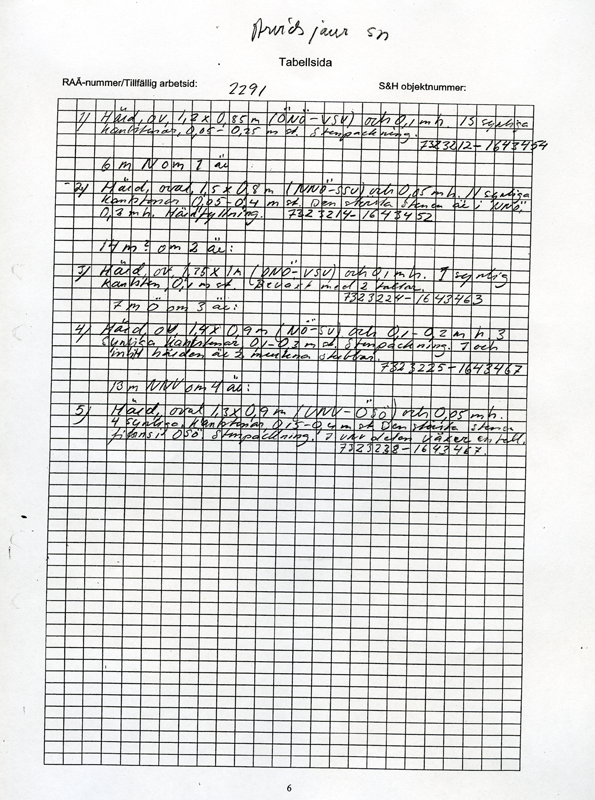 Arvidsjaur sn
Tabellsida
RAÄ-nummer/Tillfällig arbetsid: 2291 S&H objektnummer:
1) Härd, ov, 1,2 x 0,85 m (ÖNÖ-VSV) och 0,1 m h. 13 synliga
kantstenar, 0,05-0,25 m st. Stenpackning.
7323212-1643454
6 m N om 1 är
2) Härd, oval, 1,5 x 0,8 m (NNÖ-SSV) och 0,05 m h. 11 synliga
kantstenar 0,05-0,4 m st. Den största stenen är i NNÖ,
0,3 m h. Härdfyllning. 7323214-1643452
14 m om 2 är:
3) Härd, ov, 1,75 x 1 m (ÖNÖ-VSV) och 0,1 m h. 1 synlig
kantsten, 0,1 m st. Bevuxt med 2 tallar.
7323224-1643463
7 m Ö om 3 är:
4) Härd, ov, 1,4 x 0,9 m (NÖ-SV) och 0,1-0,2 m h 3
synliga kantstenar 0,1-0,3 m st. Stenpackning. I och
intill härden är 2 murkna stubbar.
7323225-1643467
13 m NNV om 4 är:
5) Härd, oval 1,3 x 0,9 m (VNV-ÖSÖ) och 0,05 m h.
4 synliga kantstenar 0,15-0,4 m st Den största stenen
finns i ÖSÖ Stenpackning. I VNV delen växer en tall.
7323238-1643467.
6